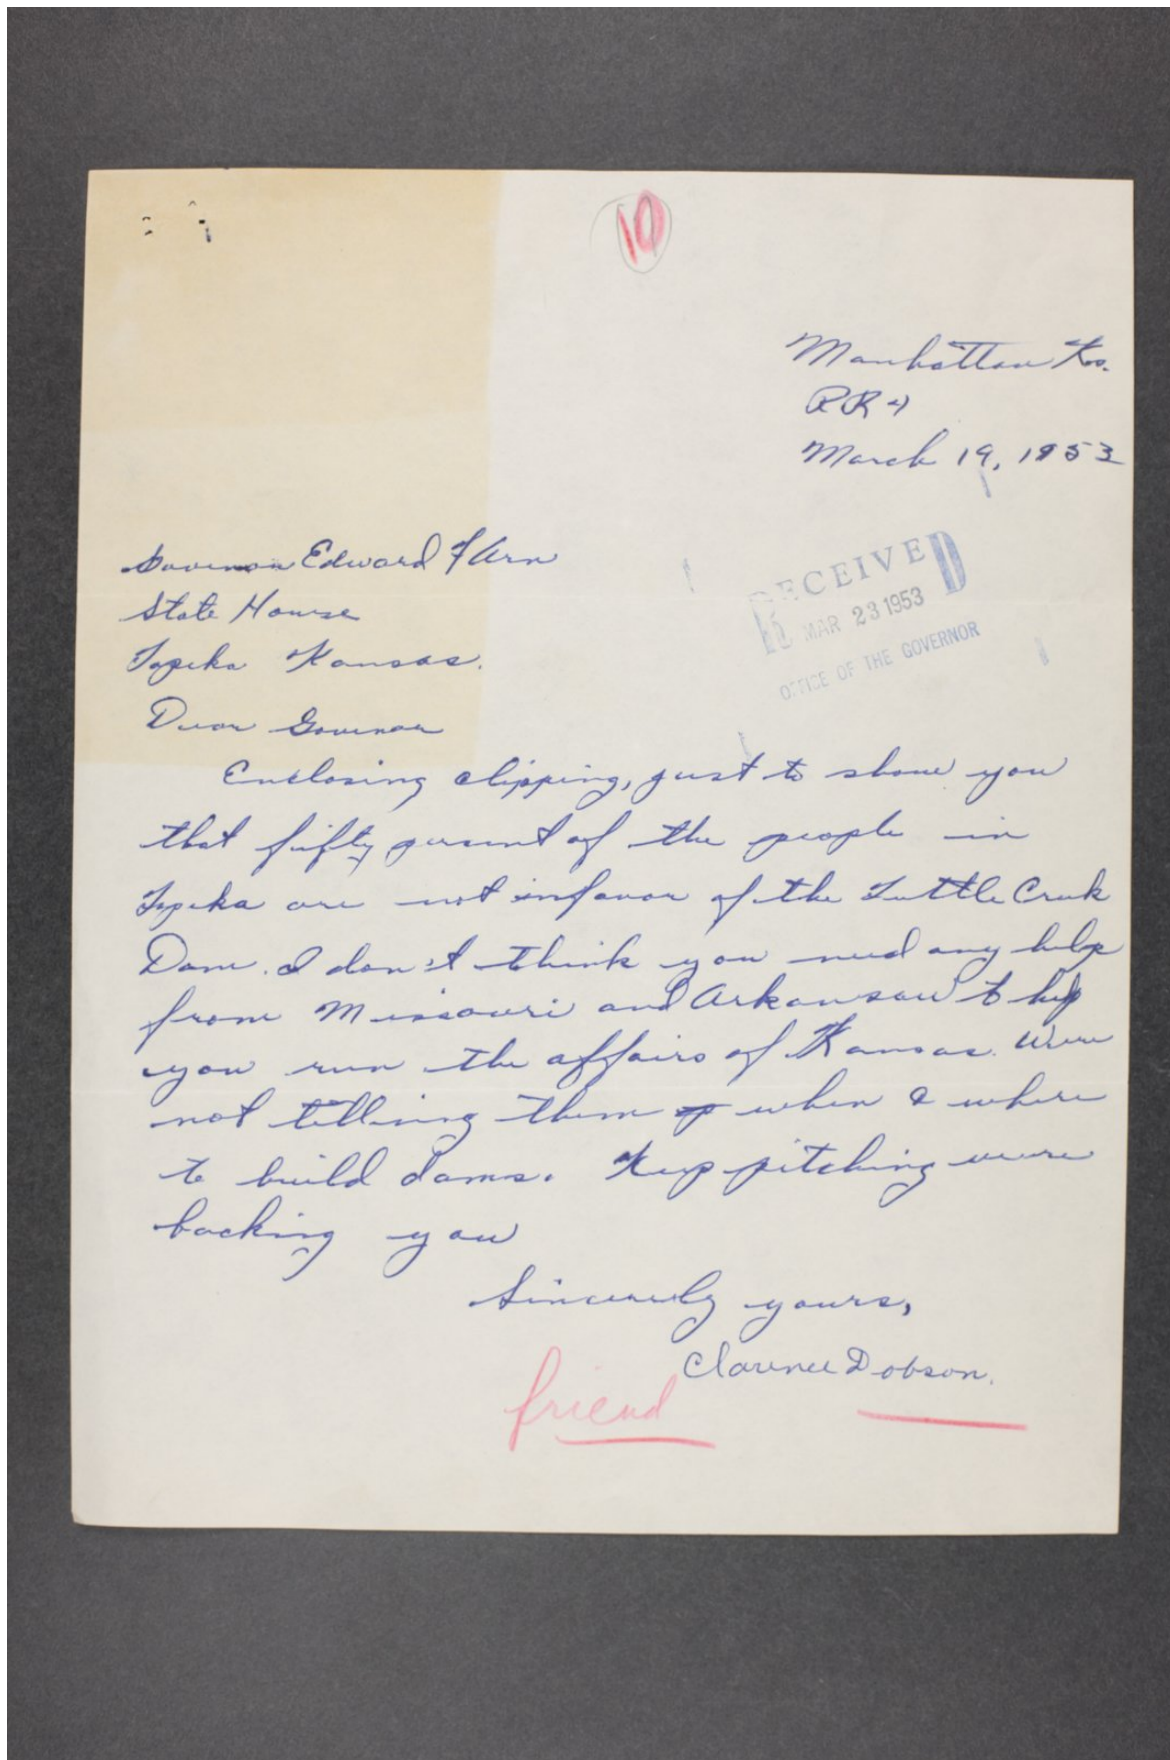 10
Manhattan Ks.
RR 4
March 19, 1953
RECEIVED
MAR 23 1953
OFFICE OF THE GOVERNOR
Govenor Edward F Arn
State House
Topeka Kansas.
Dear Govenor
Enclosing clipping, just to show you
that fifty persent of the people in
Topeka are not infavor of the Tuttle Creek
Dam. I don't think you need any help
from Missouri and Arkansaw to help
you run the affairs of Kansas. Were
not telling them when & where
to build dams. Keep pitching were
backing you
Sincerely yours,
Clarence Dobson.
friend